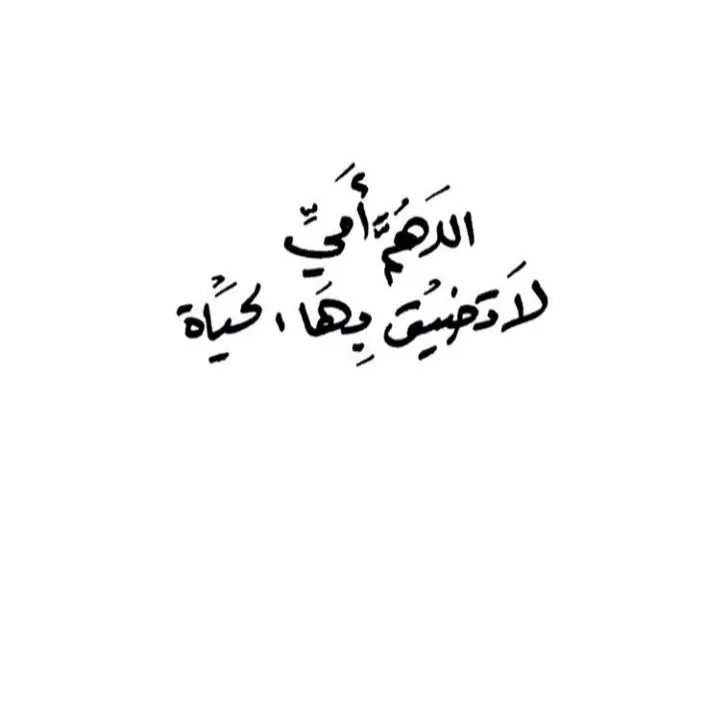 اللهُمَّ أَميِّ
لاَ تضيُق بِهَا الحيَاة